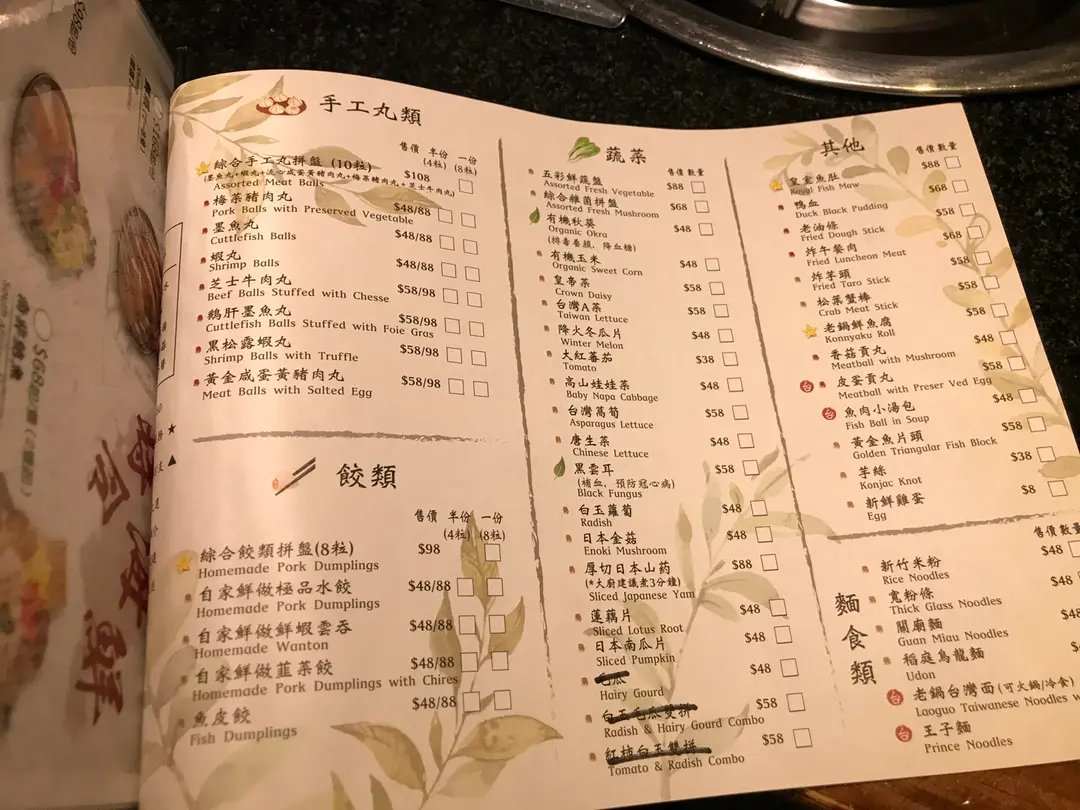 手工丸類
售價 半份 一份
(4粒) (8粒)
綜合手工丸拼盤 (10粒) $108
(墨魚丸+蝦丸+流心咸蛋黃豬肉丸+梅菜豬肉丸+芝士牛肉丸)
Assorted Meat Balls
梅菜豬肉丸 $48/88
Pork Balls with Preserved Vegetable
墨魚丸 $48/88
Cuttlefish Balls
蝦丸 $48/88
Shrimp Balls
芝士牛肉丸 $58/98
Beef Balls Stuffed with Chesse
鵝肝墨魚丸 $58/98
Cuttlefish Balls Stuffed with Foie Gras
黑松露蝦丸 $58/98
Shrimp Balls with Truffle
黃金咸蛋黃豬肉丸 $58/98
Meat Balls with Salted Egg
餃類
售價 半份 一份
(4粒) (8粒)
綜合餃類拼盤(8粒) $98
Homemade Pork Dumplings
自家鮮做極品水餃 $48/88
Homemade Pork Dumplings
自家鮮做鮮蝦雲吞 $48/88
Homemade Wanton
自家鮮做韮菜餃 $48/88
Homemade Pork Dumplings with Chires
魚皮餃 $48/88
Fish Dumplings
蔬菜
售價 數量
五彩鮮蔬盤 $88
Assorted Fresh Vegetable
綜合雜菌拼盤 $68
Assorted Fresh Mushroom
有機秋葵 $48
Organic Okra
(排毒養顏，降血糖)
有機玉米 $48
Organic Sweet Corn
皇帝菜
Crown Daisy
台灣A菜 $58
Taiwan Lettuce
降火冬瓜片 $48
Winter Melon
大紅蕃茄 $38
Tomato
高山娃娃菜 $48
Baby Napa Cabbage
台灣萵筍 $58
Asparagus Lettuce
唐生菜 $48
Chinese Lettuce
黑雲耳 $58
(補血，預防冠心病)
Black Fungus
白玉蘿蔔 $48
Radish
日本金菇 $48
Enoki Mushroom
厚切日本山药 $88
(*大廚建議煮3分鐘)
Sliced Japanese Yam
蓮藕片 $48
Sliced Lotus Root
日本南瓜片 $48
Sliced Pumpkin
毛瓜 $48
Hairy Gourd
白玉毛瓜雙拼 $58
Radish & Hairy Gourd Combo
紅柿白玉雙拼 $58
Tomato & Radish Combo
其他
售價 數量
皇室魚肚 $88
Royal Fish Maw
鴨血 $68
Duck Black Pudding
老油條 $58
Fried Dough Stick
炸午餐肉 $68
Fried Luncheon Meat
炸芋頭 $58
Fried Taro Stick
松葉蟹棒 $58
Crab Meat Stick
老鍋鮮魚腐 $58
Konnyaku Roll
香菇貢丸 $48
Meatball with Mushroom
皮蛋貢丸 $58
Meatball with Preser Ved Egg
魚肉小湯包 $48
Fish Ball in Soup
黃金魚片頭 $58
Golden Triangular Fish Block
芋絲 $38
Konjac Knot
新鮮雞蛋 $8
Egg
麵食類
售價 數量
新竹米粉 $48
Rice Noodles
寬粉條 $48
Thick Glass Noodles
關廟麵
Guan Miau Noodles
稻庭烏龍麵
Udon
老鍋台灣面(可火鍋/冷食)
Laoguo Taiwanese Noodles
王子麵
Prince Noodles